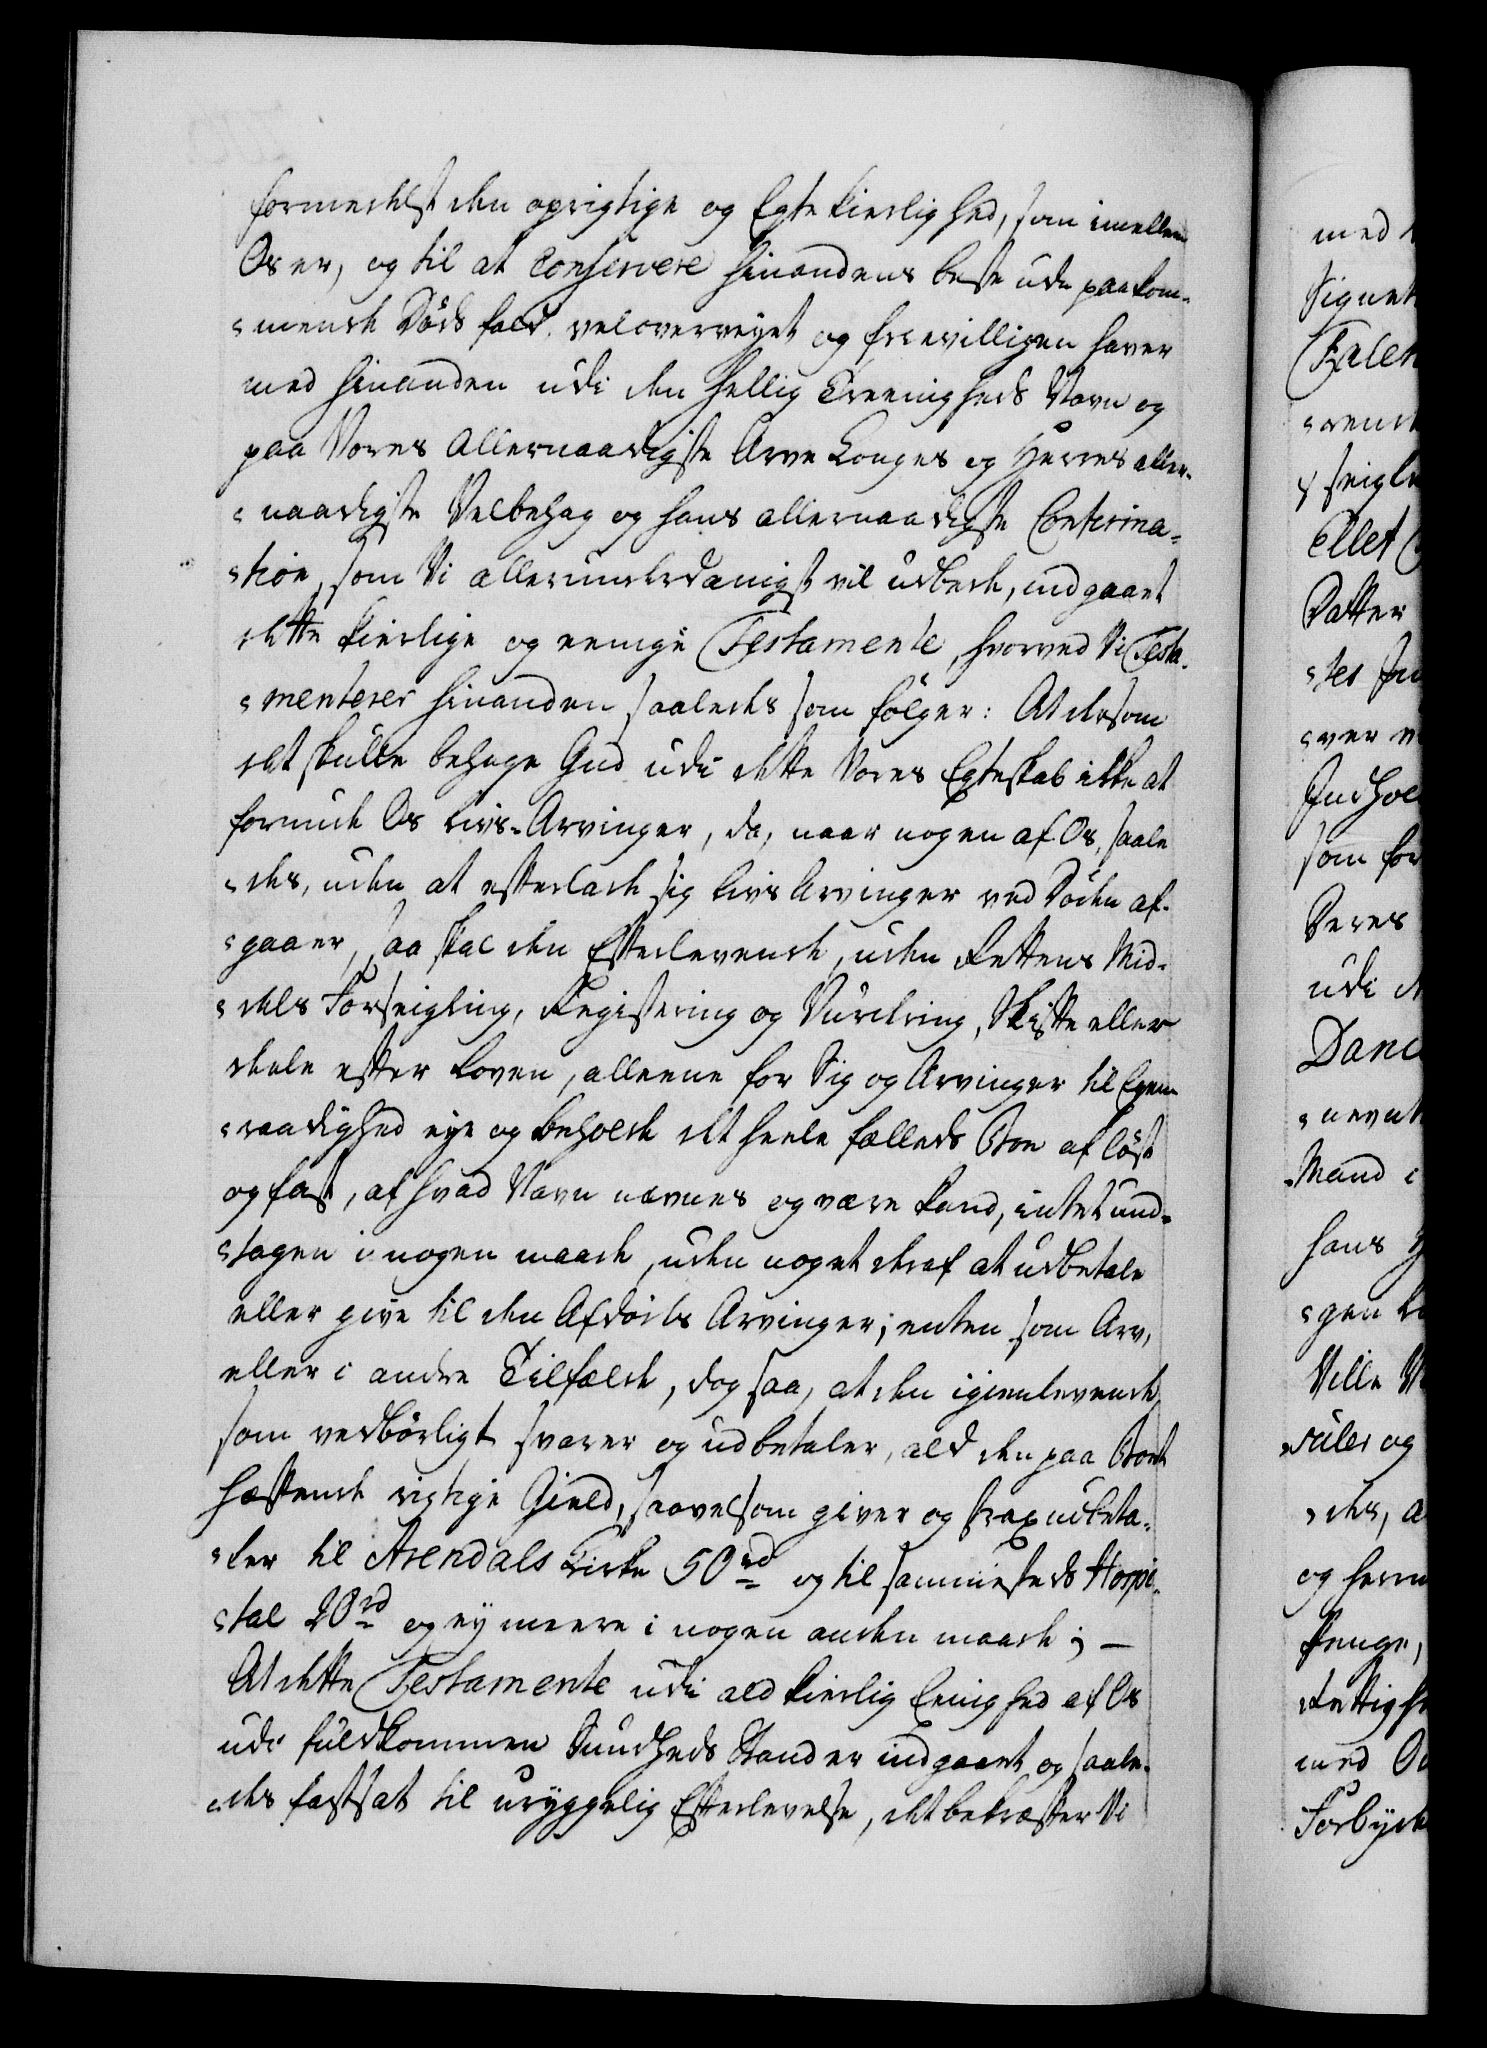 formedelst den oprigtige og Egte Kierlighed, som imellem
Os er, og til at conservere hinandens beste udi paakom¬
mende Døds fald, veloverveyet og frievilligen haver
med hinanden udi den hellig Treenigheds Navn og
paa Vores Allernaadigste Arve Konges og Herres aller¬
naadigste Velbehag og hans allernaadigste Confirma¬
tion, som Vi allerunderdanigst vil udbede, indgaaet
dette kierlige og eenige Testamente, hvorved Vi Testa¬
menterer hinanden saaledes som følger: At dersom
det skulle behage Gud udi dette Vores Egteskab ikke at
forunde Os Livs-Arvinger, da, naar nogen af Os, saale
des, uden at efterlade sig Livs Arvinger ved Døden af¬
gaaer, saa skal den Efterlevende, uden Rettens Mid¬
dels Forseigling, Registering og Vurdering, Skifte eller
deele efter Loven, alleene for Sig og Arvinger til Egen
raadighed eye og beholde det heele fælleds Boe af løst
og fast, af hvad Navn nævnes og være kand, intet und¬
tagen i nogen maade, uden noget deraf at udbetale
eller give til den Afdødes Arvinger, enten som Arv,
eller i andre Tilfælde, dog saa, at den igienlevende
som vedbørligt svarer og udbetaler, ald den paa Boet
hæftende rigtige Gield, saavelsom giver og strax udbeta¬
ler til Arendals Kirke 50 rd og til sammesteds Hospi¬
tal 20 rd og ey meere i nogen anden maade; —
At dette Testamente udi ald kierlig Eenighed af Os
udi fuldkommen Sundheds Stand er indgaaet og saale¬
des fastsat til uryggelig Efterlevelse, det bekræfter Vi